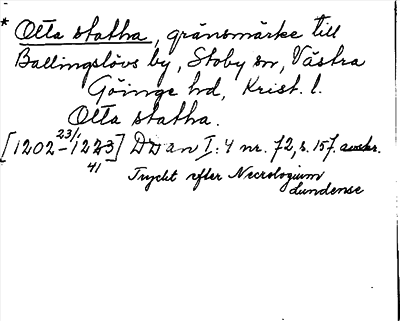 * Otta statha, gränsmärke till
Ballingslövs by, Stoby sn, Västra
Göinge hd, Krist. l.
Otta statha.
[1202-23/1 1223] DD an I:4 nr. 72, s. 157. avskr.
41
Tryckt efter Necrologium
Lundense